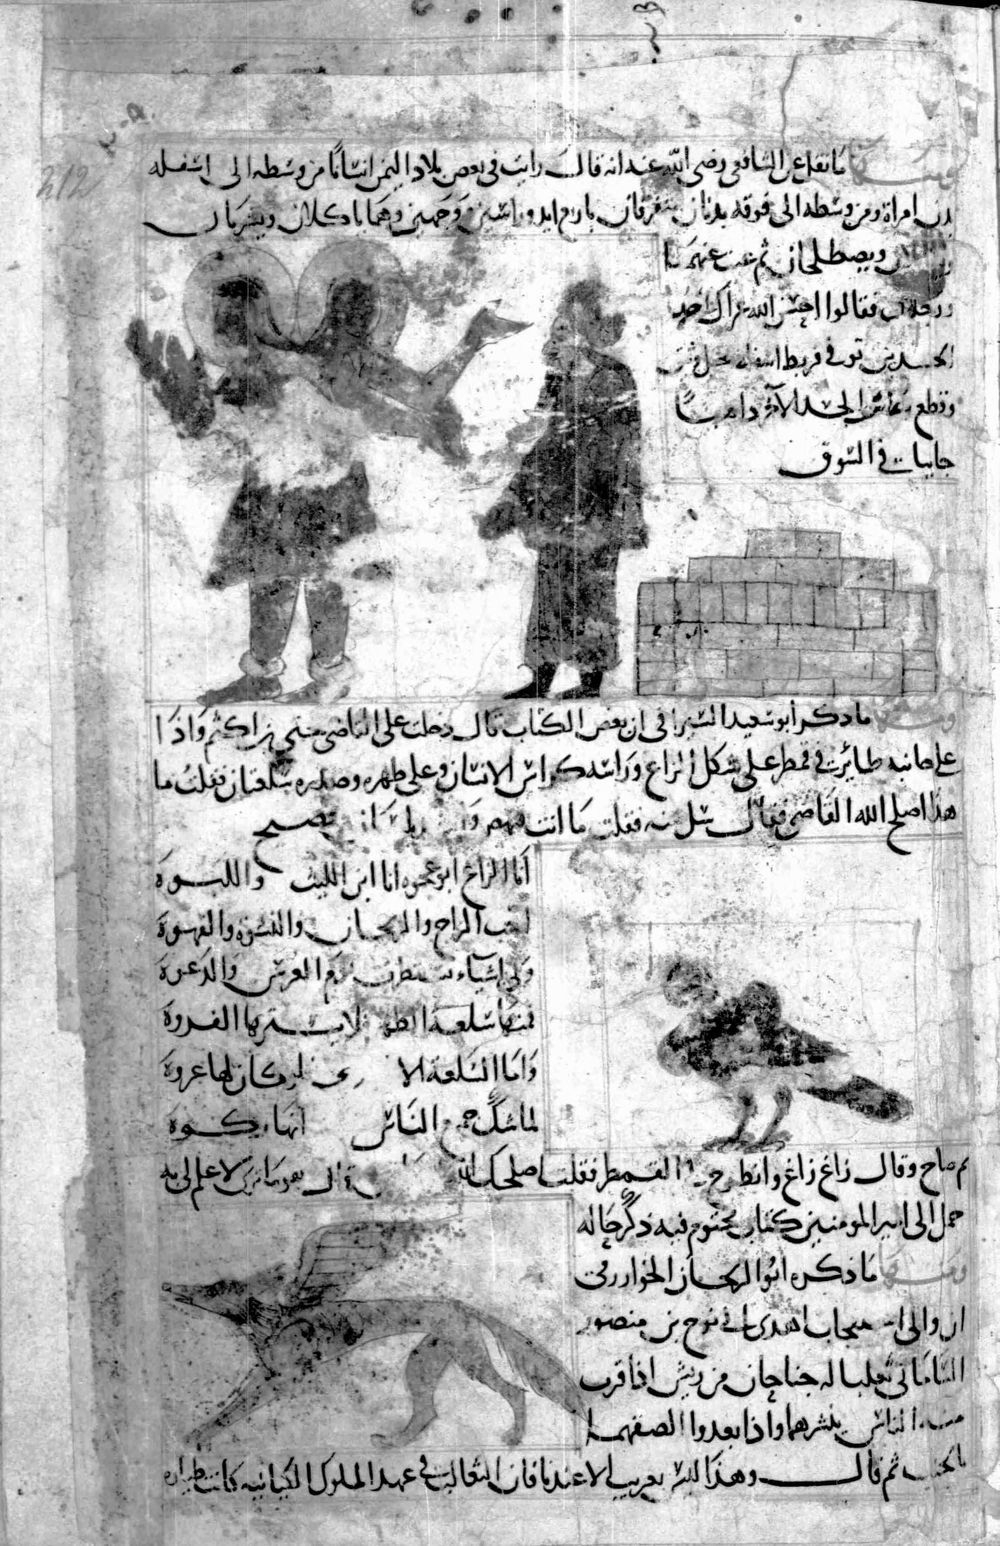 212
ومنها ما نقل عن الشافعي رضي الله عنه انه قال رايت في بعض بلاد اليمن انسانا من وسطه الى اسفله
بدن امراة ومن وسطه الى فوقه بدنان متفرقان باربع ايد وراسين ووجهين وهما ياكلان ويشربان
ويصطلحان ثم غبت عنهما
ورجعت فقالوا احسن الله عزاك احد
الجسدين توفي فربط اسفله بحبل
وقطع فعاش الجسد الآخر ذاهبا
جايبا في السوق
ومنها ما ذكر أبو سعيد السيرافي ان بعض الكتاب قال دخلت على القاضي يحيى بن اكثم واذا
على جانبه طائر في قمطر على شكل الزاغ وراسه كراس الانسان وعلى ظهره وصدره سلعتان فقلت ما
هذا اصلح الله القاضي فقال سل منه فقلت ما انت فصيح
أنا الزاغ ابو عجوه انا ابن الليث واللبوة
احب الراح والريحان والنشوة والقهوة
ولي اشياء يوم العرس والدعوة
فمنها سلعة الظهر لا يسترها الفروة
وأما السلعة الاخرى فلو كان لها عروة
لما شك جميع الناس انها ركوة
ثم صاح وقال زاغ زاغ وانطرح القمطر فقلت اصلحك الله لا علم لي به
حمل الى امير المومنين كتاب مختوم فيه ذكر حاله
ومنها ما ذكره ابو الريحان الخوارزمي
ان والي اهدى الى نوح بن منصور
الساماني ثعلبا له جناحان من ريش اذا قرب
منه الناس ينشرهما واذا بعدوا الصقهما
بالجنب ثم قال وهذا ليس بعريب الا عندنا فان الثعالب في عهد الملوك الكيانية كانت طيارة